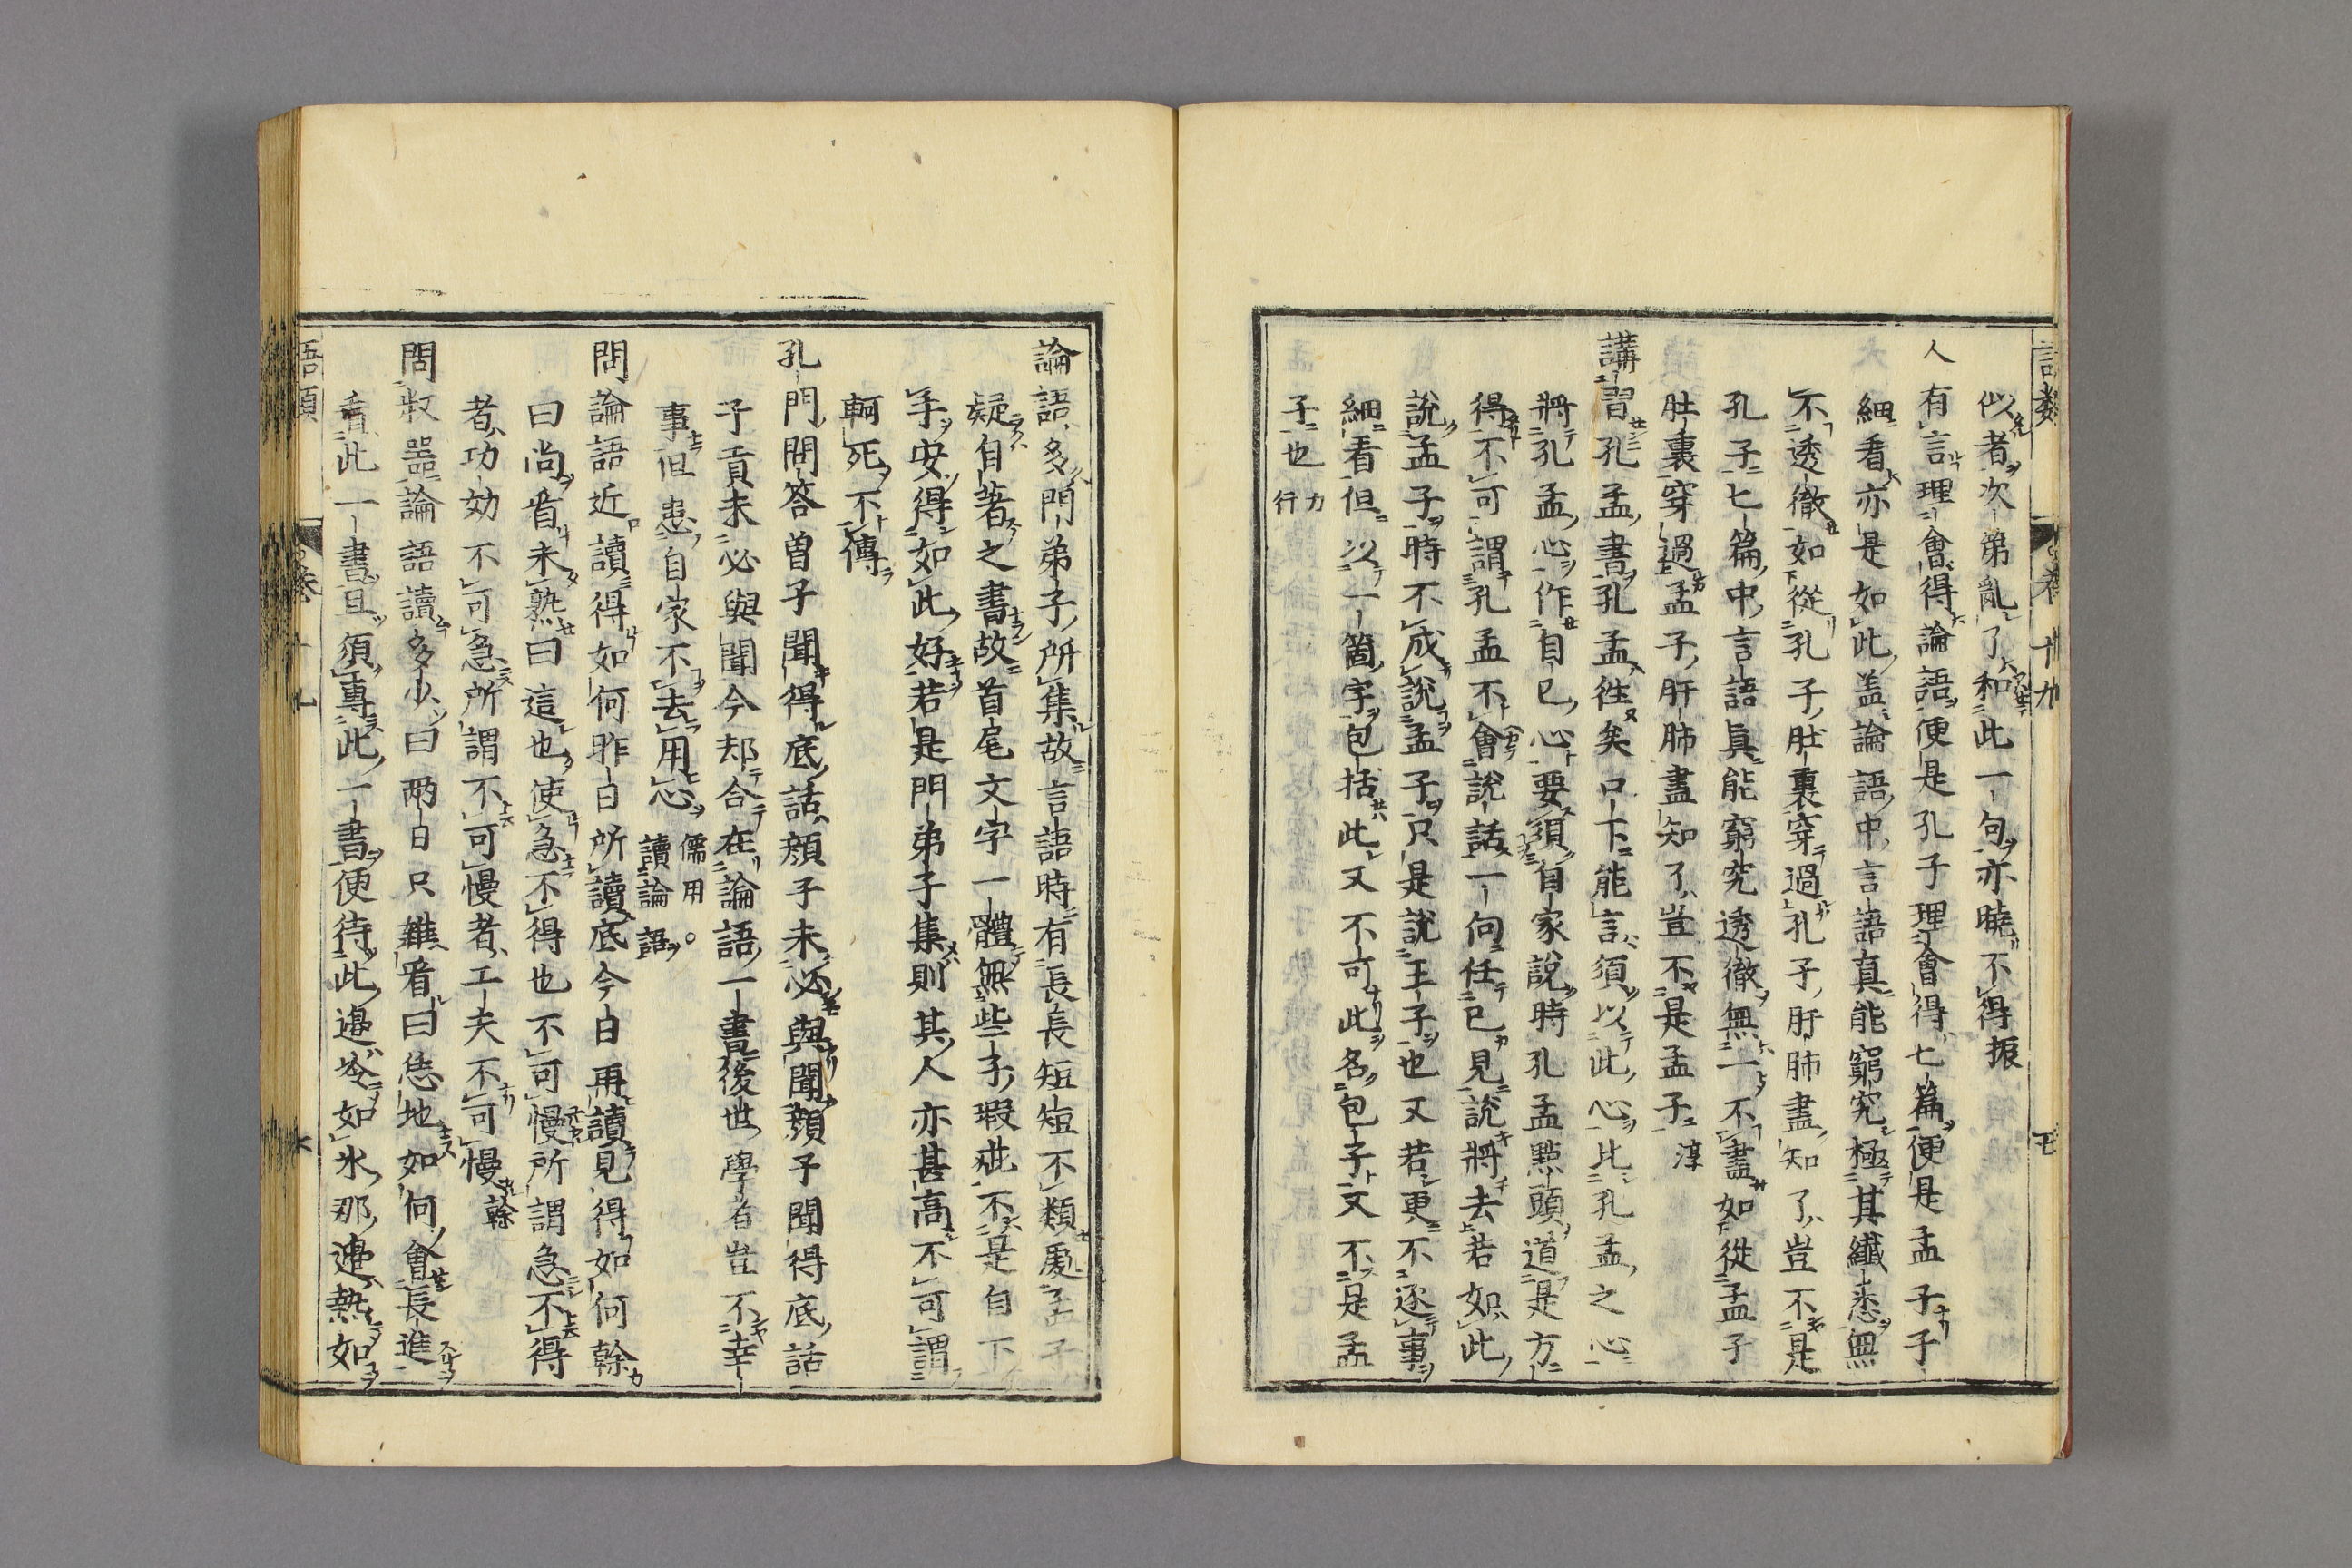 語類 卷十九
似者次第亂了和此一句亦曉不得振
人有言理會得論語便是孔子理會得七篇便是孟子子
細看亦是如此盖論語中言語真能窮究極其纖悉無
不透徹如從孔子肚裏穿過孔子肝肺盡知了豈不是
孔子七篇中言語眞能窮究透徹無一不盡如從孟子
肚裏穿過孟子肝肺盡知了豈不是孟子淳
講習孔孟書孔孟徃矣口下能言須以此心比孔孟之心
將孔孟心作自己心要須自家說時孔孟㸃頭道是方
得不可謂孔孟不會說話一向任己見說將去若如此
說孟子時不成說孟子只是說王子也又若更不逐事
細看但以一箇字包括此又不可此名包子又不是孟
子也力行
論語多門弟子所集故言語時有長長短短不類處孟子
疑自著之書故首尾文字一體無些子瑕疵不是自下
手安得如此好若是門弟子集則其人亦甚高不可謂
軻死不傳
孔門問答曽子聞得底話顔子未必與聞顔子聞得底話
子貢未必與聞今却合在論語一書後世學者豈不幸
事但患自家不去用心儒用○讀論語
問論語近讀得如何昨日所讀底今日再讀見得如何幹
曰尚看未熟曰這也使急不得也不可慢所謂急不得
者功効不可急所謂不可慢者工夫不可慢幹
問叔器論語讀多少曰兩日只雜看曰恁地如何會長進
看此一書且須專此一書便待此邉冷如氷那邉熱如
語類 卷十九